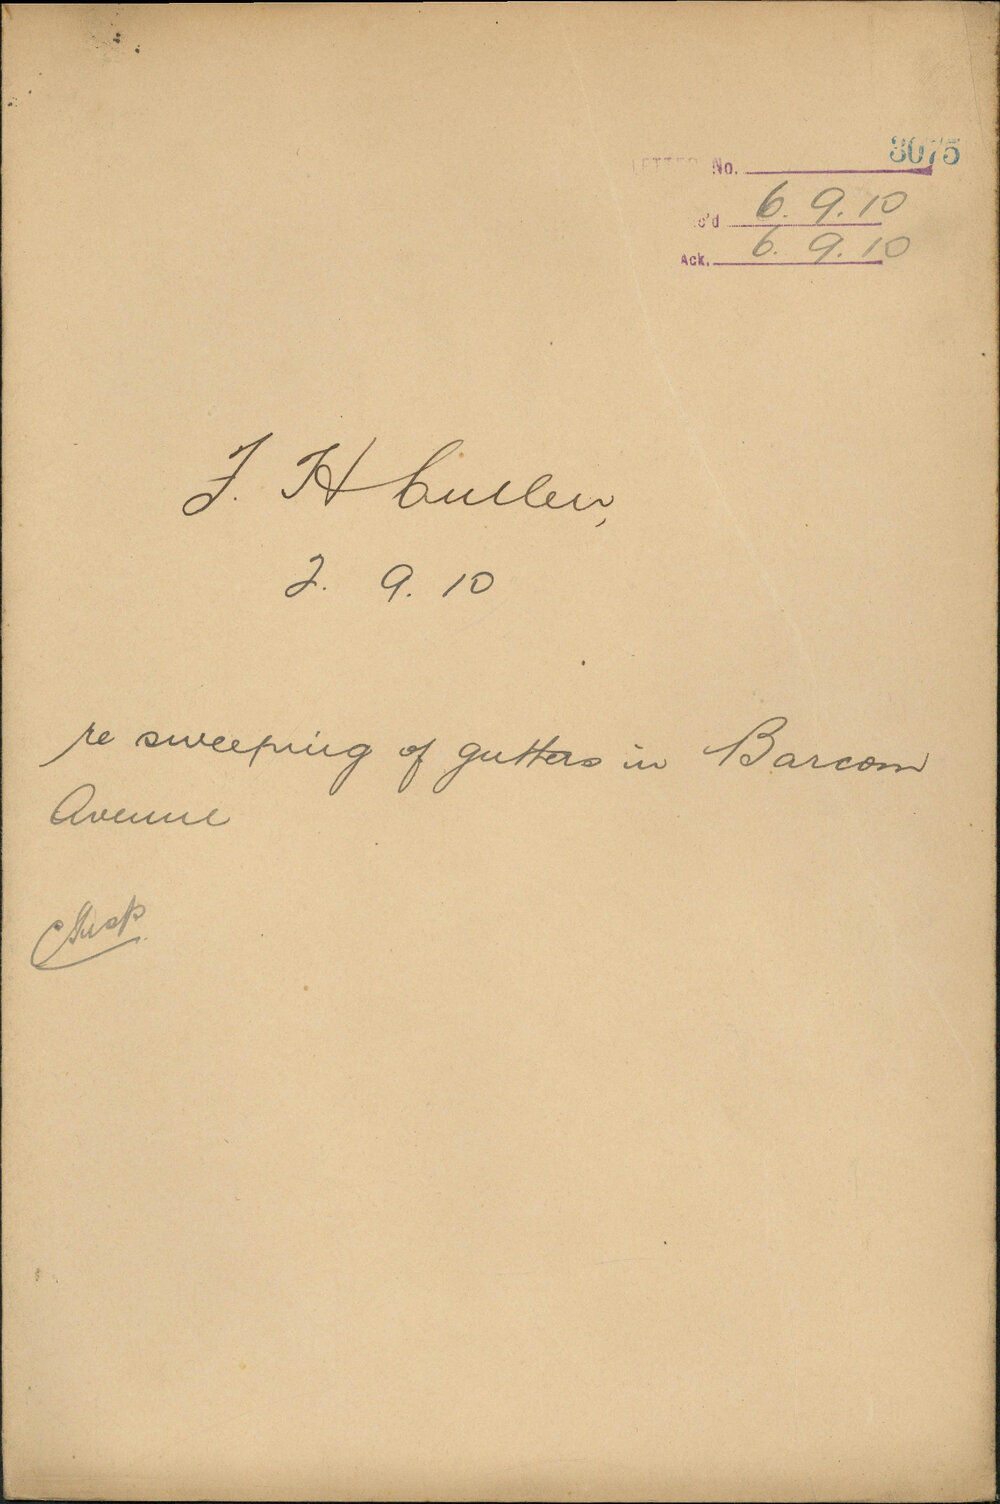 LETTER No. 3075
c'd 6. 9. 10
Ack. 6. 9. 10
F. H Cullen,
2. 9. 10
re sweeping of gutters in Barcom
Avenue